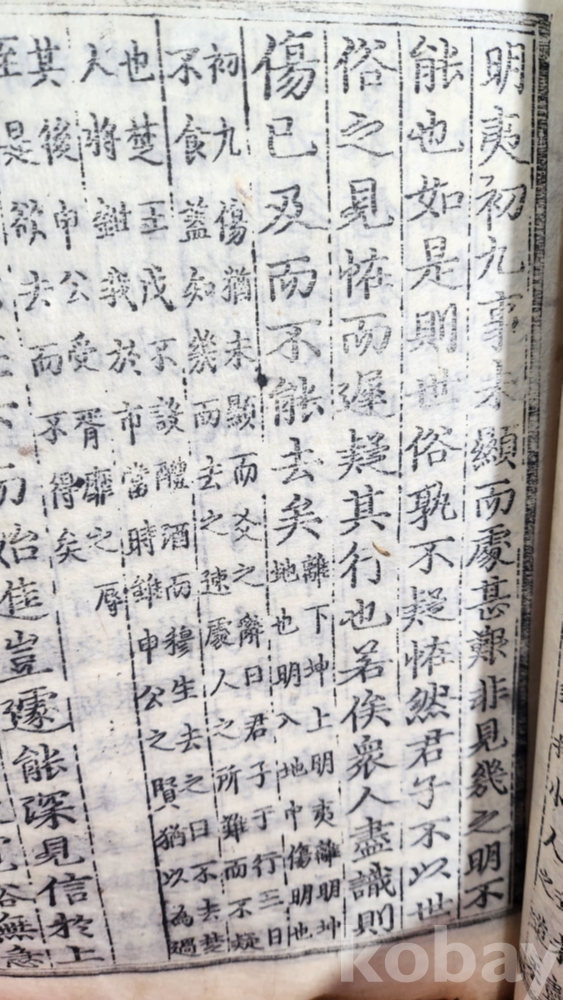 明夷初九事未顯而處甚艱非見幾之明不
能也如是則世俗孰不疑恠然君子不以世
俗之見恠而遲疑其行也若俟衆人盡識則
傷已及而不能去矣
離下坤上明夷離明坤
地也明入地中傷明也
初九傷猶未顯而爻之辭曰君子于行三日
不食蓋知幾而去之速處人之所難而不疑
也楚王戊不設醴酒而穆生去之曰不去楚
人將鉗我於市當時雖申公之賢猶以為過
其後申公受胥靡之辱
至是欲去而不得矣
下而始進豈遽能深見信於上
裕無急
小人之
kobay